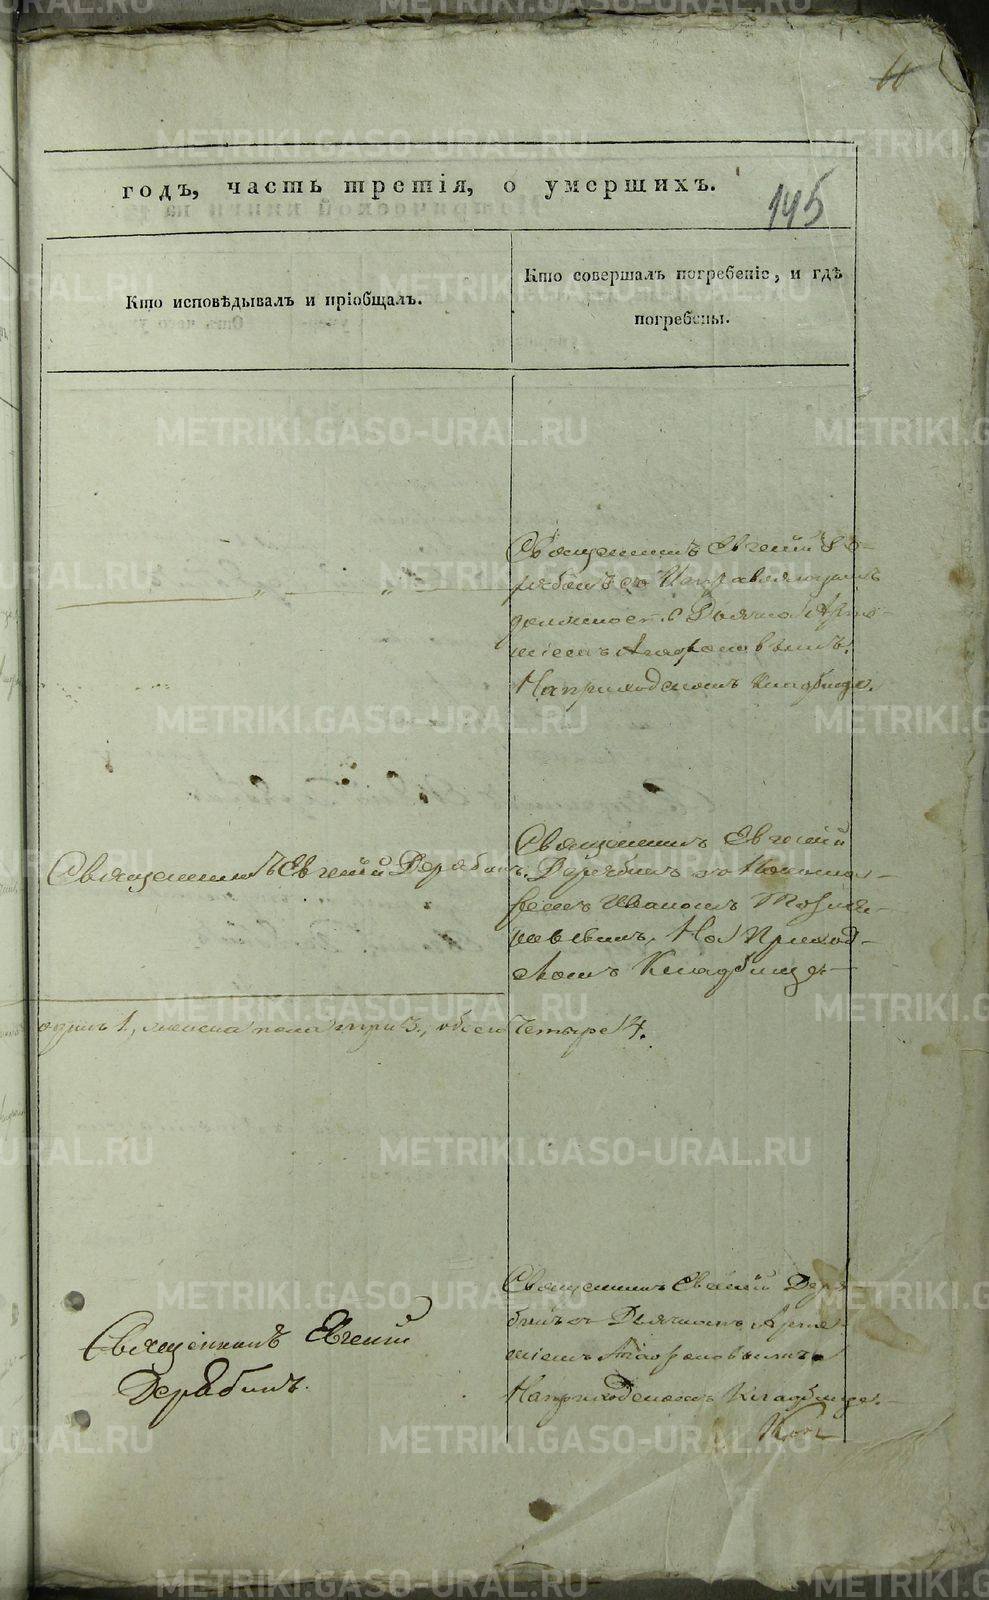 годъ, часть третія, о умершихъ.
145
Кто исповѣдывалъ и пріобщалъ.
Кто совершалъ погребеніе, и гдѣ
погребены.
Священникъ Евгений Де-
рябинъ съ Исправляющимъ
должность Дьячка Арте-
міемъ
На приходскомъ кладбище.
Священникъ Евгеній Дерябинъ.
Священникъ Евгеній
Дерябинъ со Понома-
ремъ Иваномъ
На Приход-
скомъ Кладбище
одинъ 1, женска пола три 3., обоего четыре 4.
Священникъ Евгеній
Дерябинъ.
Священникъ Евгеній Деря
бинъ съ Дьячкомъ Арте-
міемъ
На приходскомъ Кладбище.
METRIKI.GASO-URAL.RU